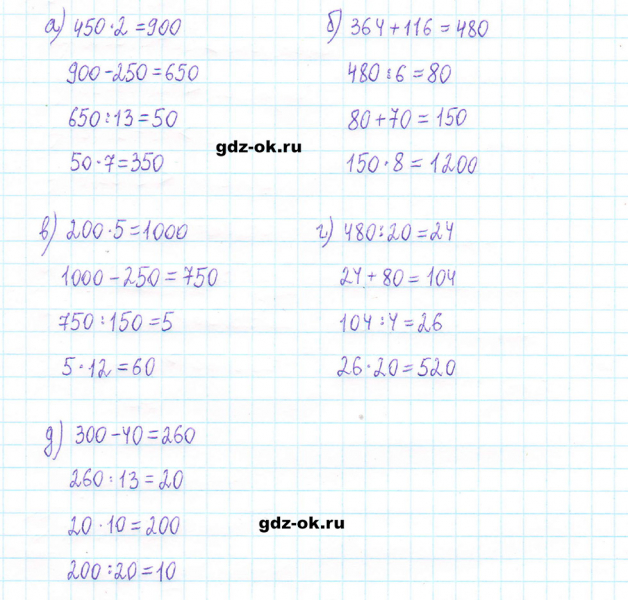 а) 450·2=900
900-250=650
650:13=50
50·7=350
б) 364+116=480
480:6=80
80+70=150
150·8=1200
gdz-ok.ru
в) 200·5=1000
1000-250=750
750:150=5
5·12=60
г) 480:20=24
24+80=104
104:4=26
26·20=520
д) 300-40=260
260:13=20
20·10=200
200:20=10
gdz-ok.ru